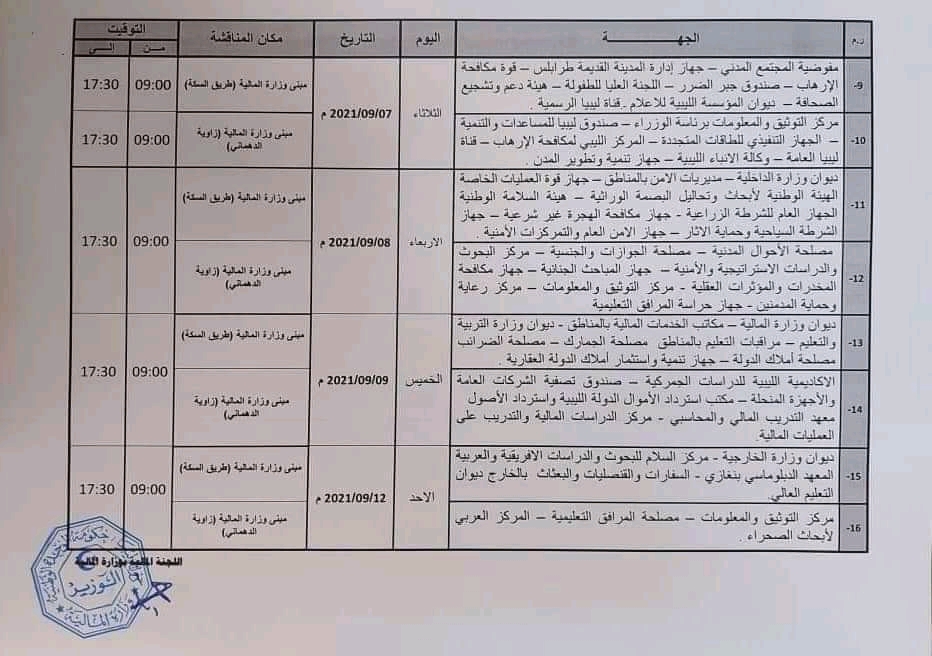 ر.م الجهـــــــــة اليوم التاريخ مكان المناقشة التوقيت
مـن إلـى
-9 مفوضية المجتمع المدني – جهاز إدارة المدينة القديمة طرابلس – قوة مكافحة
الإرهاب – صندوق جبر الضرر – اللجنة العليا للطفولة – هيئة دعم وتشجيع
الصحافة – ديوان المؤسسة الليبية للاعلام . قناة ليبيا الرسمية .
الثلاثاء
2021/09/07 م
مبنى وزارة المالية (طريق السكة)
09:00 17:30
-10 مركز التوثيق والمعلومات برئاسة الوزراء – صندوق ليبيا للمساعدات والتنمية
– الجهاز التنفيذي للطاقات المتجددة – المركز الليبي لمكافحة الإرهاب – قناة
ليبيا العامة – وكالة الانباء الليبية – جهاز تنمية وتطوير المدن .
مبنى وزارة المالية (زاوية
الدهماني)
09:00 17:30
-11 ديوان وزارة الداخلية – مديريات الامن بالمناطق – جهاز قوة العمليات الخاصة
الهيئة الوطنية لأبحاث وتحاليل البصمة الوراثية – هيئة السلامة الوطنية
الجهاز العام للشرطة الزراعية - جهاز مكافحة الهجرة غير شرعية – جهاز
الشرطة السياحية وحماية الاثار – جهاز الامن العام والتمركزات الأمنية .
الاربعاء
2021/09/08 م
مبنى وزارة المالية (طريق السكة)
09:00 17:30
-12 مصلحة الأحوال المدنية – مصلحة الجوازات والجنسية – مركز البحوث
والدراسات الاستراتيجية والأمنية – جهاز المباحث الجنائية – جهاز مكافحة
المخدرات والمؤثرات العقلية - مركز التوثيق والمعلومات – مركز رعاية
وحماية المدمنين - جهاز حراسة المرافق التعليمية
مبنى وزارة المالية (زاوية
الدهماني)
-13 ديوان وزارة المالية – مكاتب الخدمات المالية بالمناطق - ديوان وزارة التربية
والتعليم – مراقبات التعليم بالمناطق مصلحة الجمارك – مصلحة الضرائب
مصلحة أملاك الدولة – جهاز تنمية واستثمار أملاك الدولة العقارية .
الخميس
2021/09/09 م
مبنى وزارة المالية (طريق السكة)
09:00 17:30
-14 الاكاديمية الليبية للدراسات الجمركية – صندوق تصفية الشركات العامة
والأجهزة المنحلة – مكتب استرداد الأموال الدولة الليبية واسترداد الأصول
معهد التدريب المالي والمحاسبي - مركز الدراسات المالية والتدريب على
العمليات المالية.
مبنى وزارة المالية (زاوية
الدهماني)
-15 ديوان وزارة الخارجية - مركز السلام للبحوث والدراسات الافريقية والعربية
المعهد الدبلوماسي بنغازي - السفارات والقنصليات والبعثات بالخارج ديوان
التعليم العالي.
الاحد
2021/09/12 م
مبنى وزارة المالية (طريق السكة)
09:00 17:30
-16 مركز التوثيق والمعلومات – مصلحة المرافق التعليمية – المركز العربي
لأبحاث الصحراء .
مبنى وزارة المالية (زاوية
الدهماني)
اللجنة المالية بوزارة المالية
حكومة الوحدة الوطنية
الوزير
وزارة المالية